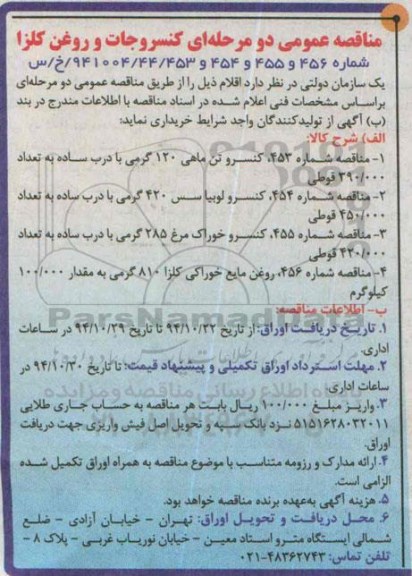 مناقصه عمومی دو مرحله‌ای کنسروجات و روغن کلزا
شماره ۴۵۶ و ۴۵۵ و ۴۵۴ و ۹۴۱۰۰۴/۴۴/۴۵۳/خ/س
یک سازمان دولتی در نظر دارد اقلام ذیل را از طریق مناقصه عمومی دو مرحله‌ای
براساس مشخصات فنی اعلام شده در اسناد مناقصه با اطلاعات مندرج در بند
(ب) آگهی از تولیدکنندگان واجد شرایط خریداری نماید:
الف) شرح کالا:
۱- مناقصه شماره ۴۵۳، کنسرو تن ماهی ۱۲۰ گرمی با درب ساده به تعداد
۳۹۰/۰۰۰ قوطی
۲- مناقصه شماره ۴۵۴، کنسرو لوبیا سس ۴۲۰ گرمی با درب ساده به تعداد
۴۵۰/۰۰۰ قوطی
۳- مناقصه شماره ۴۵۵، کنسرو خوراک مرغ ۲۸۵ گرمی با درب ساده به تعداد
۴۳۰/۰۰۰ قوطی
۴- مناقصه شماره ۴۵۶، روغن مایع خوراکی کلزا ۸۱۰ گرمی به مقدار ۱۰۰/۰۰۰
کیلوگرم
ب- اطلاعات مناقصه:
۱. تاریخ دریافت اوراق: از تاریخ ۹۴/۱۰/۲۲ تا تاریخ ۹۴/۱۰/۲۹ در ساعات
اداری.
۲. مهلت استرداد اوراق تکمیلی و پیشنهاد قیمت: تا تاریخ ۹۴/۱۰/۳۰ در
ساعات اداری.
۳. واریز مبلغ ۱۰۰/۰۰۰ ریال بابت هر مناقصه به حساب جاری طلایی
۵۱۵۱۶۲۸۰۳۲۰۱۱ نزد بانک سپه و تحویل اصل فیش واریزی جهت دریافت
اوراق.
۴. ارائه مدارک و رزومه متناسب با موضوع مناقصه به همراه اوراق تکمیل شده
الزامی است.
۵. هزینه آگهی به‌عهده برنده مناقصه خواهد بود.
۶. محل دریافت و تحویل اوراق: تهران - خیابان آزادی - ضلع
شمالی ایستگاه مترو استاد معین - خیابان نوریاب غربی - پلاک ۸ -
تلفن تماس: ۴۸۳۶۲۷۴۳-۰۲۱
ParsNamadData